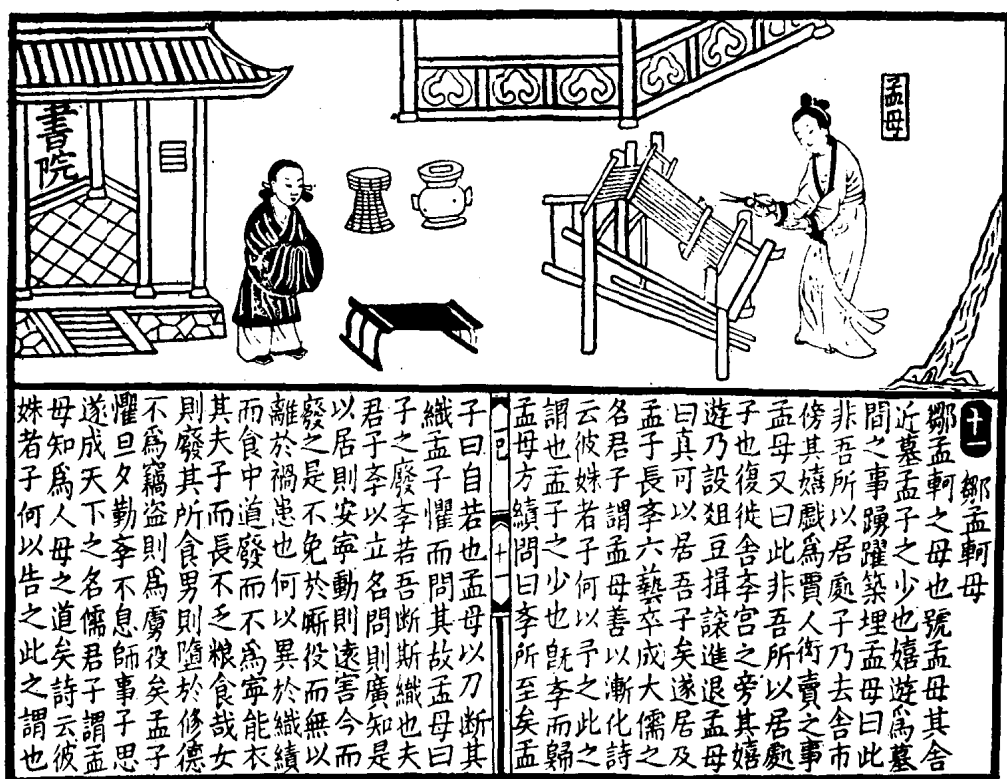 孟母
書院
十一
鄒孟軻母
鄒孟軻之母也號孟母其舍
近墓孟子之少也嬉遊爲墓
間之事踴躍築埋孟母曰此
非吾所以居處子乃去舍市
傍其嬉戲爲賈人衒賣之事
孟母又曰此非吾所以居處
子也復徙舍斈宮之旁其嬉
遊乃設俎豆揖讓進退孟母
曰真可以居吾子矣遂居及
孟子長斈六藝卒成大儒之
名君子謂孟母善以漸化詩
云彼姝者子何以予之此之
謂也孟子之少也旣斈而歸
孟母方績問曰斈所至矣孟
十一
子曰自若也孟母以刀斷其
織孟子懼而問其故孟母曰
子之廢斈若吾斷斯織也夫
君子斈以立名問則廣知是
以居則安寧動則遠害今而
廢之是不免於厮役而無以
離於禍患也何以異於織績
而食中道廢而不爲寧能衣
其夫子而長不乏粮食哉女
則廢其所食男則墮於修德
不爲竊盜則爲虜役矣孟子
懼旦夕勤斈不息師事子思
遂成天下之名儒君子謂孟
母知爲人母之道矣詩云彼
姝者子何以告之此之謂也